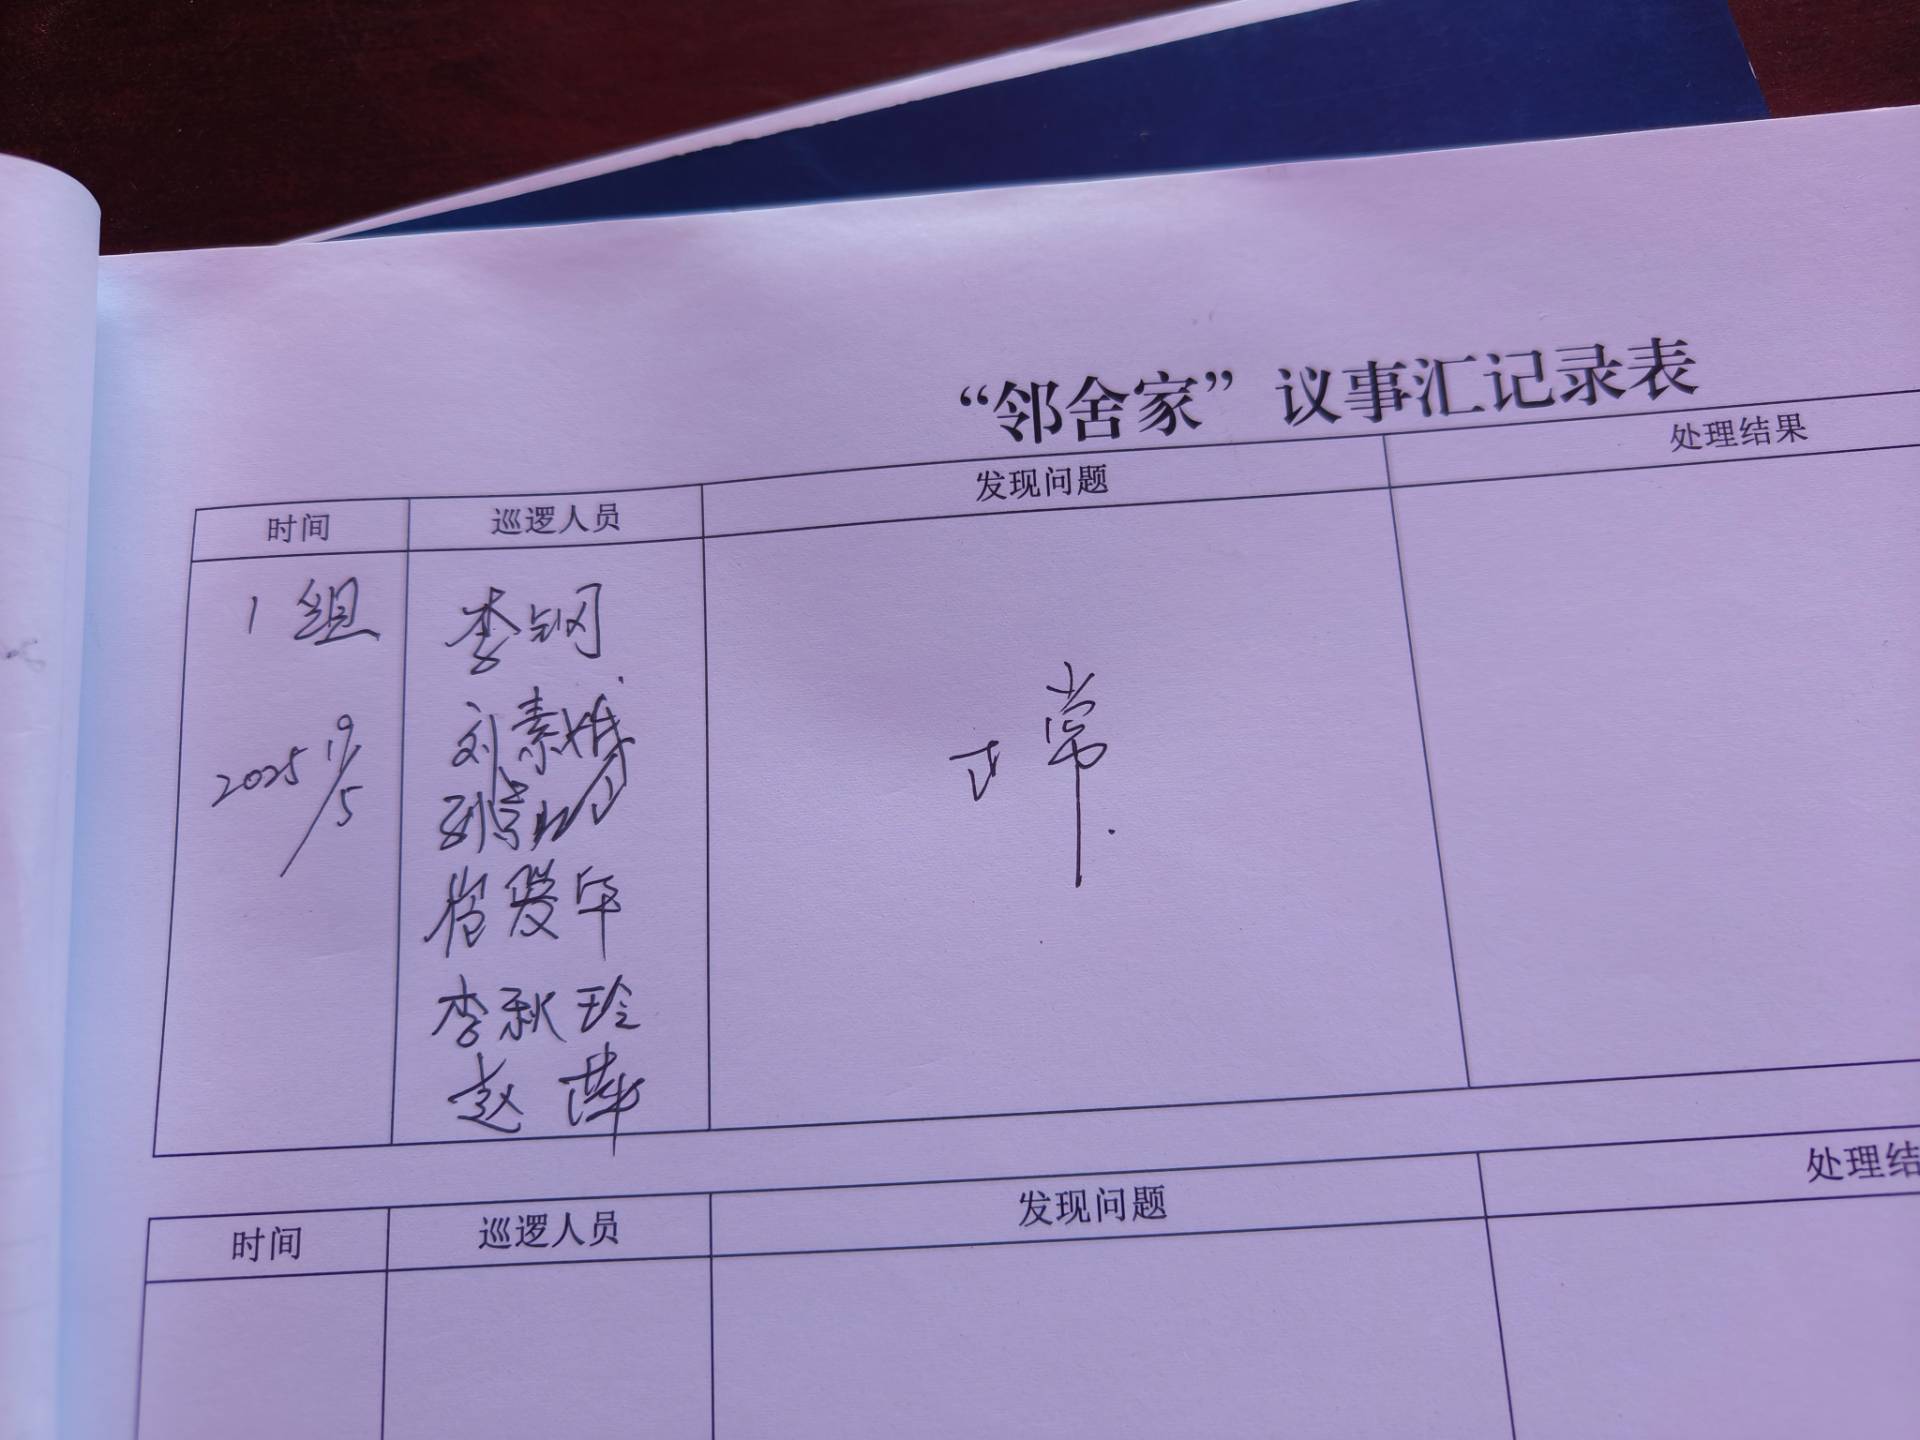 “邻舍家”议事汇记录表
时间 巡逻人员 发现问题 处理结果
1组 李钢
刘素
2025 正常
崔爱华
李秋玲
赵萍
时间 巡逻人员 发现问题 处理结